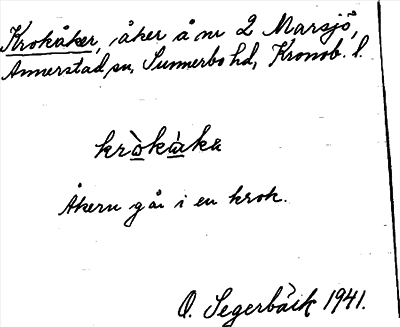 Krokåker, åker å nr 2 Marsjö,
Annerstad sn, Sunnerbo hd, Kronob. l.
kròkàka
Åkern går i en krok.
O. Segerbäck 1941.